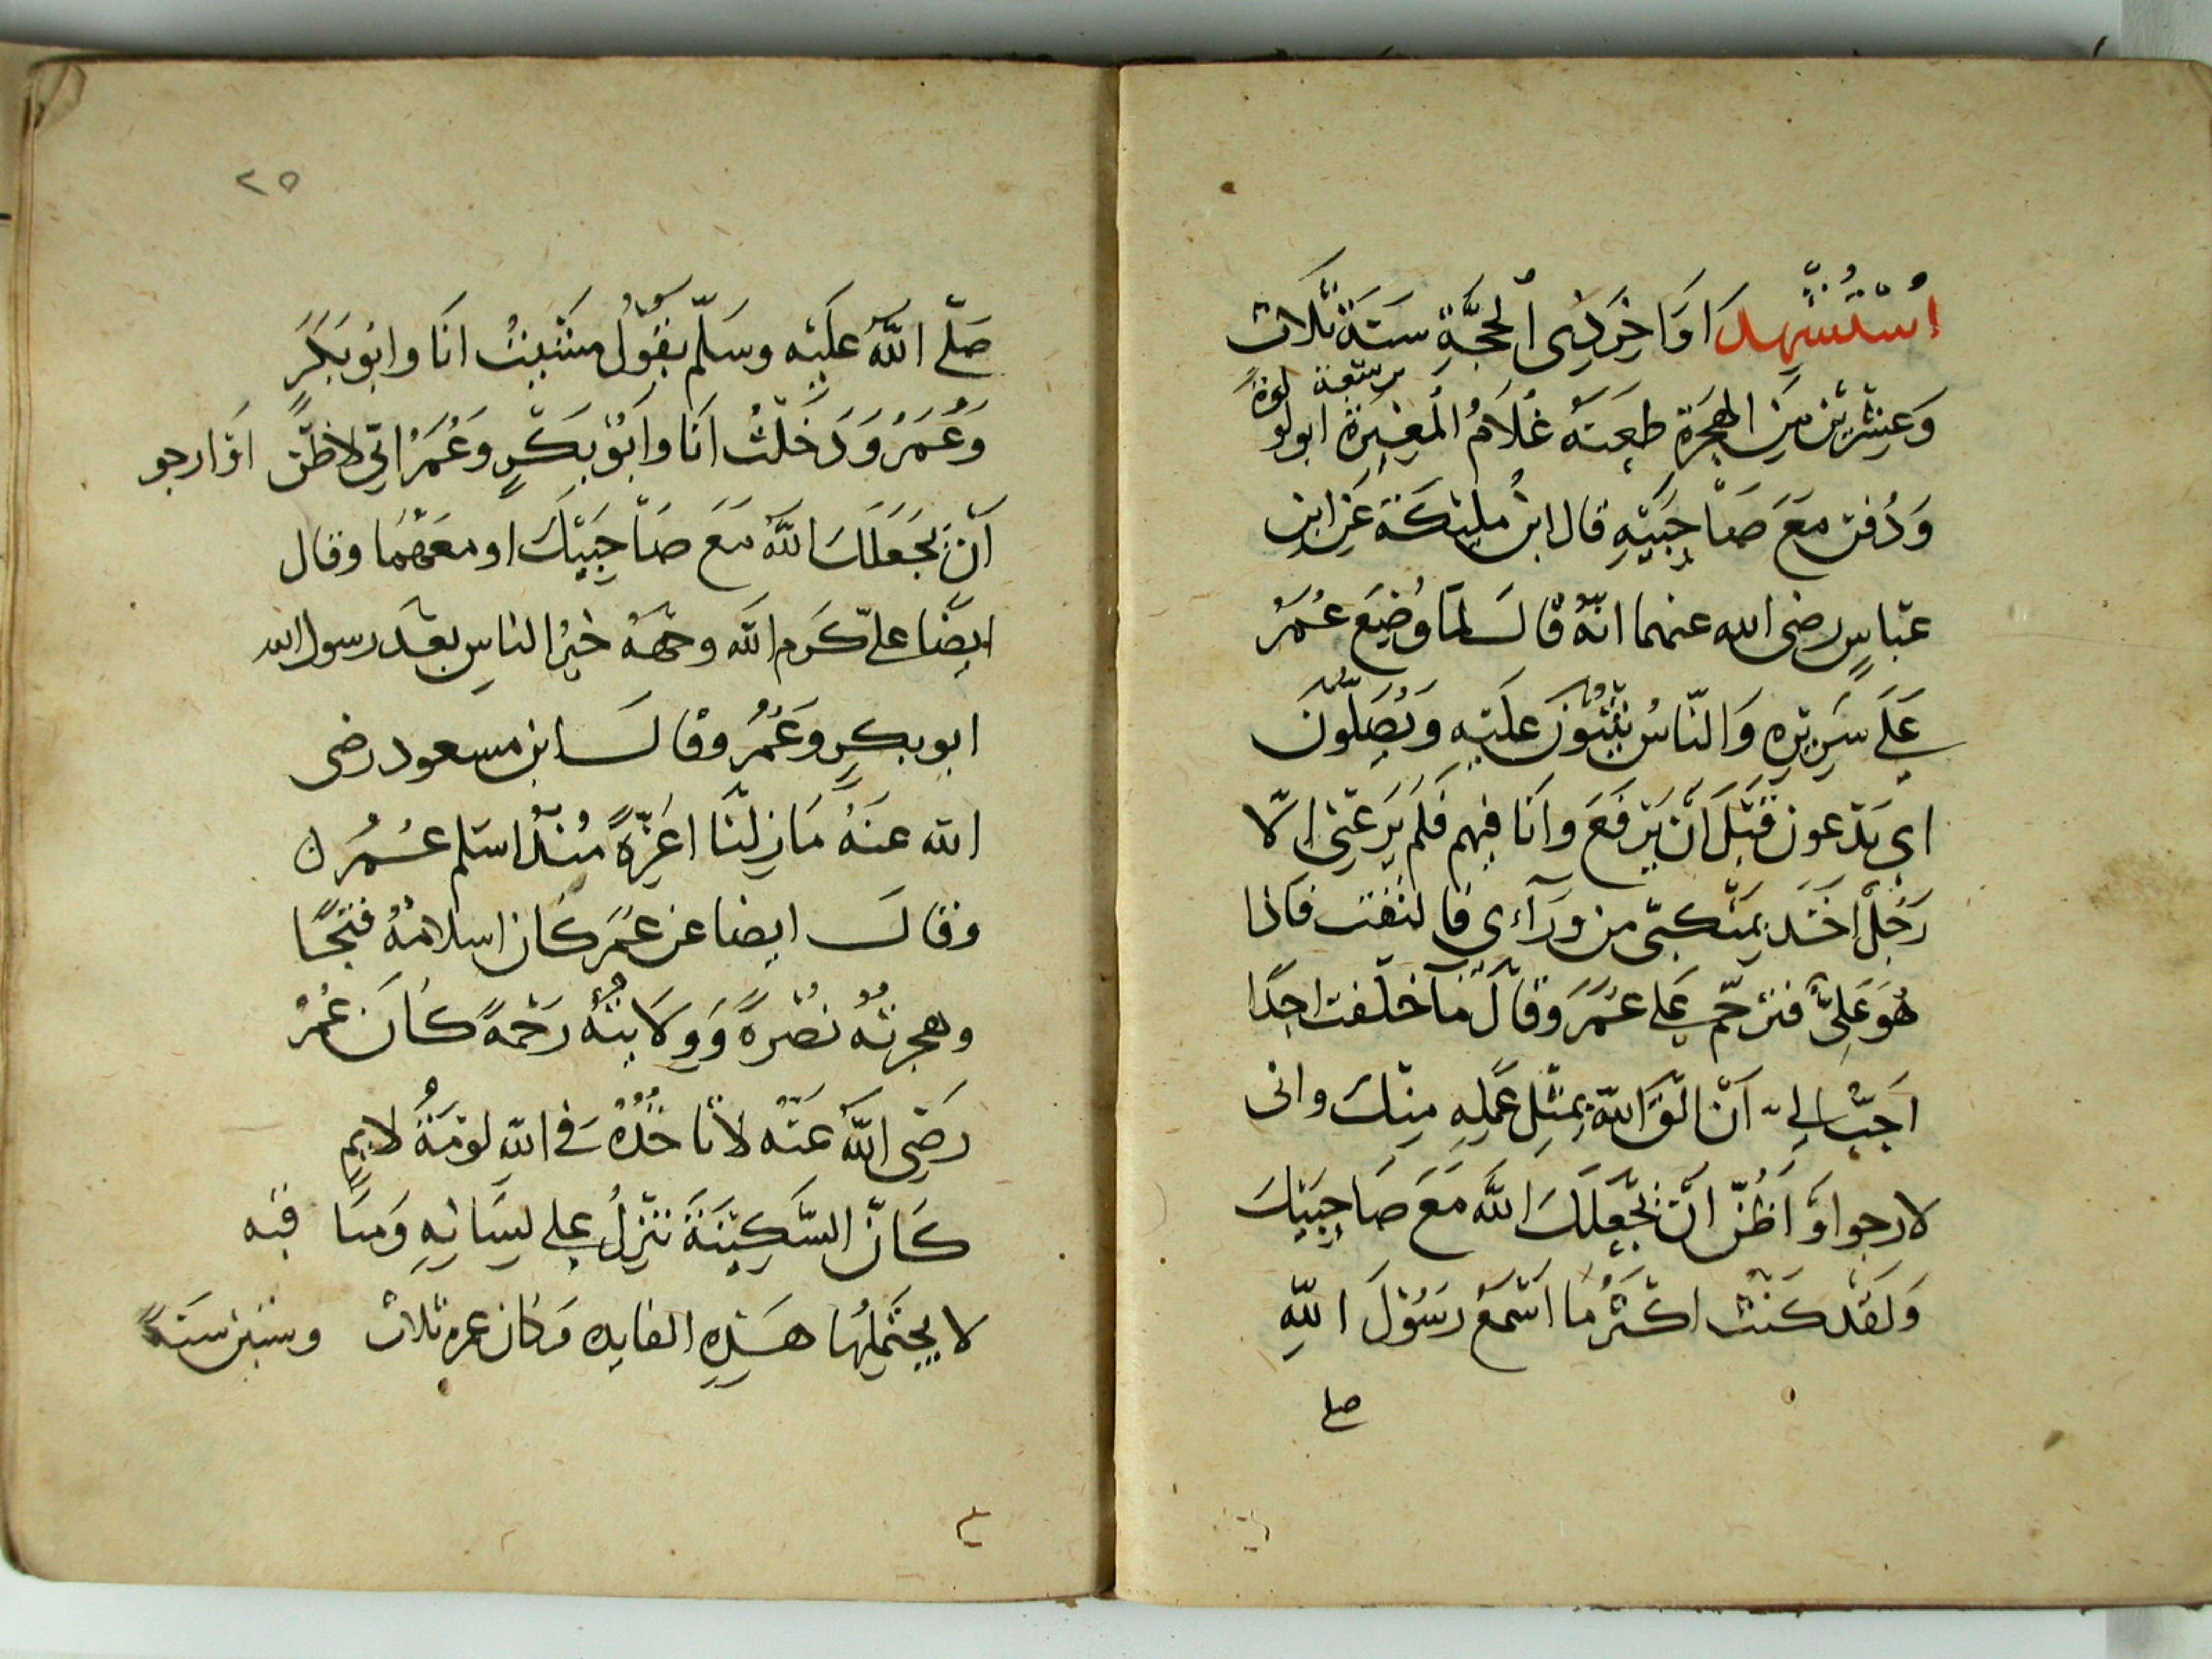 اُسْتُشْهِدَ اوَاخِرَ ذِى الْحِجَّةِ سَنَةَ ثَلَاث
وَعِشْرِيْنَ مِنَ الهِجْرَةِ طَعِنَهُ غُلَامُ الْمُغِيْرَةِ ابولو لوة
وَدُفن مَعَ صَاحِبَيْهِ قال ابنُ مليكَة عَنِ ابنِ
عبّاسٍ رضى الله عنهما انّهُ قالَ لمَّا وُضِعَ عُمَرُ
عَلَى سَرِيْرِهِ وَالنّاسُ يُثْنُوْنَ عَلَيْهِ وَيُصَلُّوْنَ
اى يَدْعون قَبْلَ اَنْ يُرْفَعَ وانَا فيهم فَلَم يَرعْنِى اِلّا
رَجُلٌ اخَذَ بِمَنْكِبَىّ من ورَآءى فالتفت فاذا
هُوَ عَلِىٌّ فترحّم عَلى عمَرَ وَقالَ مَا خَلّفت احدًا
اَحَبُّ الى اَنْ الْقَ اللّهَ بِمِثْلِ عَمَلِهِ مِنكَ وانى
لارجوا اوَ اَظُنّ انْ يَجْعَلَكَ اللَّه مَعَ صَاحِبَيْكَ
وَلَقَدْ كَنْت اكْثَرُ مَا اَسْمَعُ رَسُوْلَ اللّهِ
صلى
٢٥
صَلّى اللّهُ عَلَيْه وسَلّم يَقُولُ مشَيْتُ انَا وابُو بَكَرٍ
وَعُمَرُ وَدَخَلْتُ اَنَا وَابُوْ بَكْرٍ وَعُمَرُ انِّى لاظنّ اوَ ارجو
اَنْ يَجْعَلَكَ اللَّهُ مَعَ صَاحِبَيْكَ او معَهُمَا وقال
ايضًا علىّ كَرم اللّه وجهَهُ خيْرُ الناسِ بعْدَ رسول الله
ابو بكرٍ وَعُمَرُ وقالَ ابن مسعود رضى
الله عنهُ مَا زِلْنَا اعَزّةً مُنْذُ اسَلم عُمَرُ ن
وقالَ ايضا عن عُمَرَ كَان اسلامُهُ فتحًا
وهجرتُهُ نصْرةً وَوِلَايتُهُ رَحْمَةً كَانَ عُمَرُ
رَضِى اللّهُ عنْه لا تَاخُذُهُ فى اللّهِ لَوْمَةُ لايمٍ
كَانّ السَّكِيْنَةَ تنْزِلُ على لِسَانِهِ وَمَا فيه
لا يحتملُها هَذِهِ الفايده وَكان عمره ثلاث وستين سنَةً